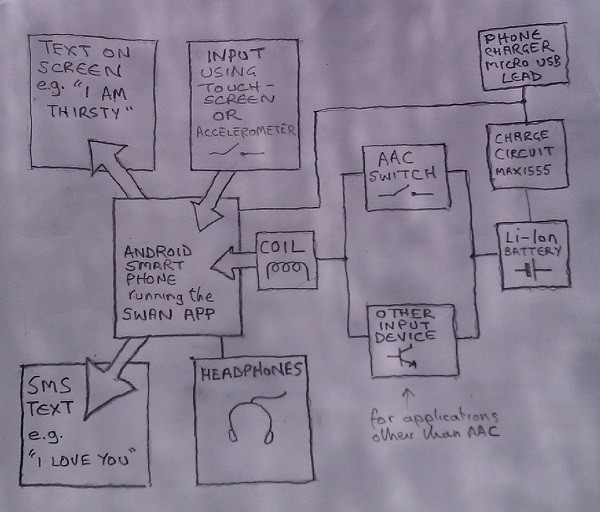 TEXT ON
SCREEN
e.g. "I AM
THIRSTY"
INPUT
USING
TOUCH-
SCREEN
OR
ACCELEROMETER
PHONE
CHARGER
MICRO USB
LEAD
CHARGE
CIRCUIT
MAX1555
AAC
SWITCH
Li-Ion
BATTERY
COIL
ANDROID
SMART
PHONE
running the
SWAN APP
OTHER
INPUT
DEVICE
for applications
other than AAC
SMS
TEXT
e.g.
"I LOVE YOU"
HEADPHONES